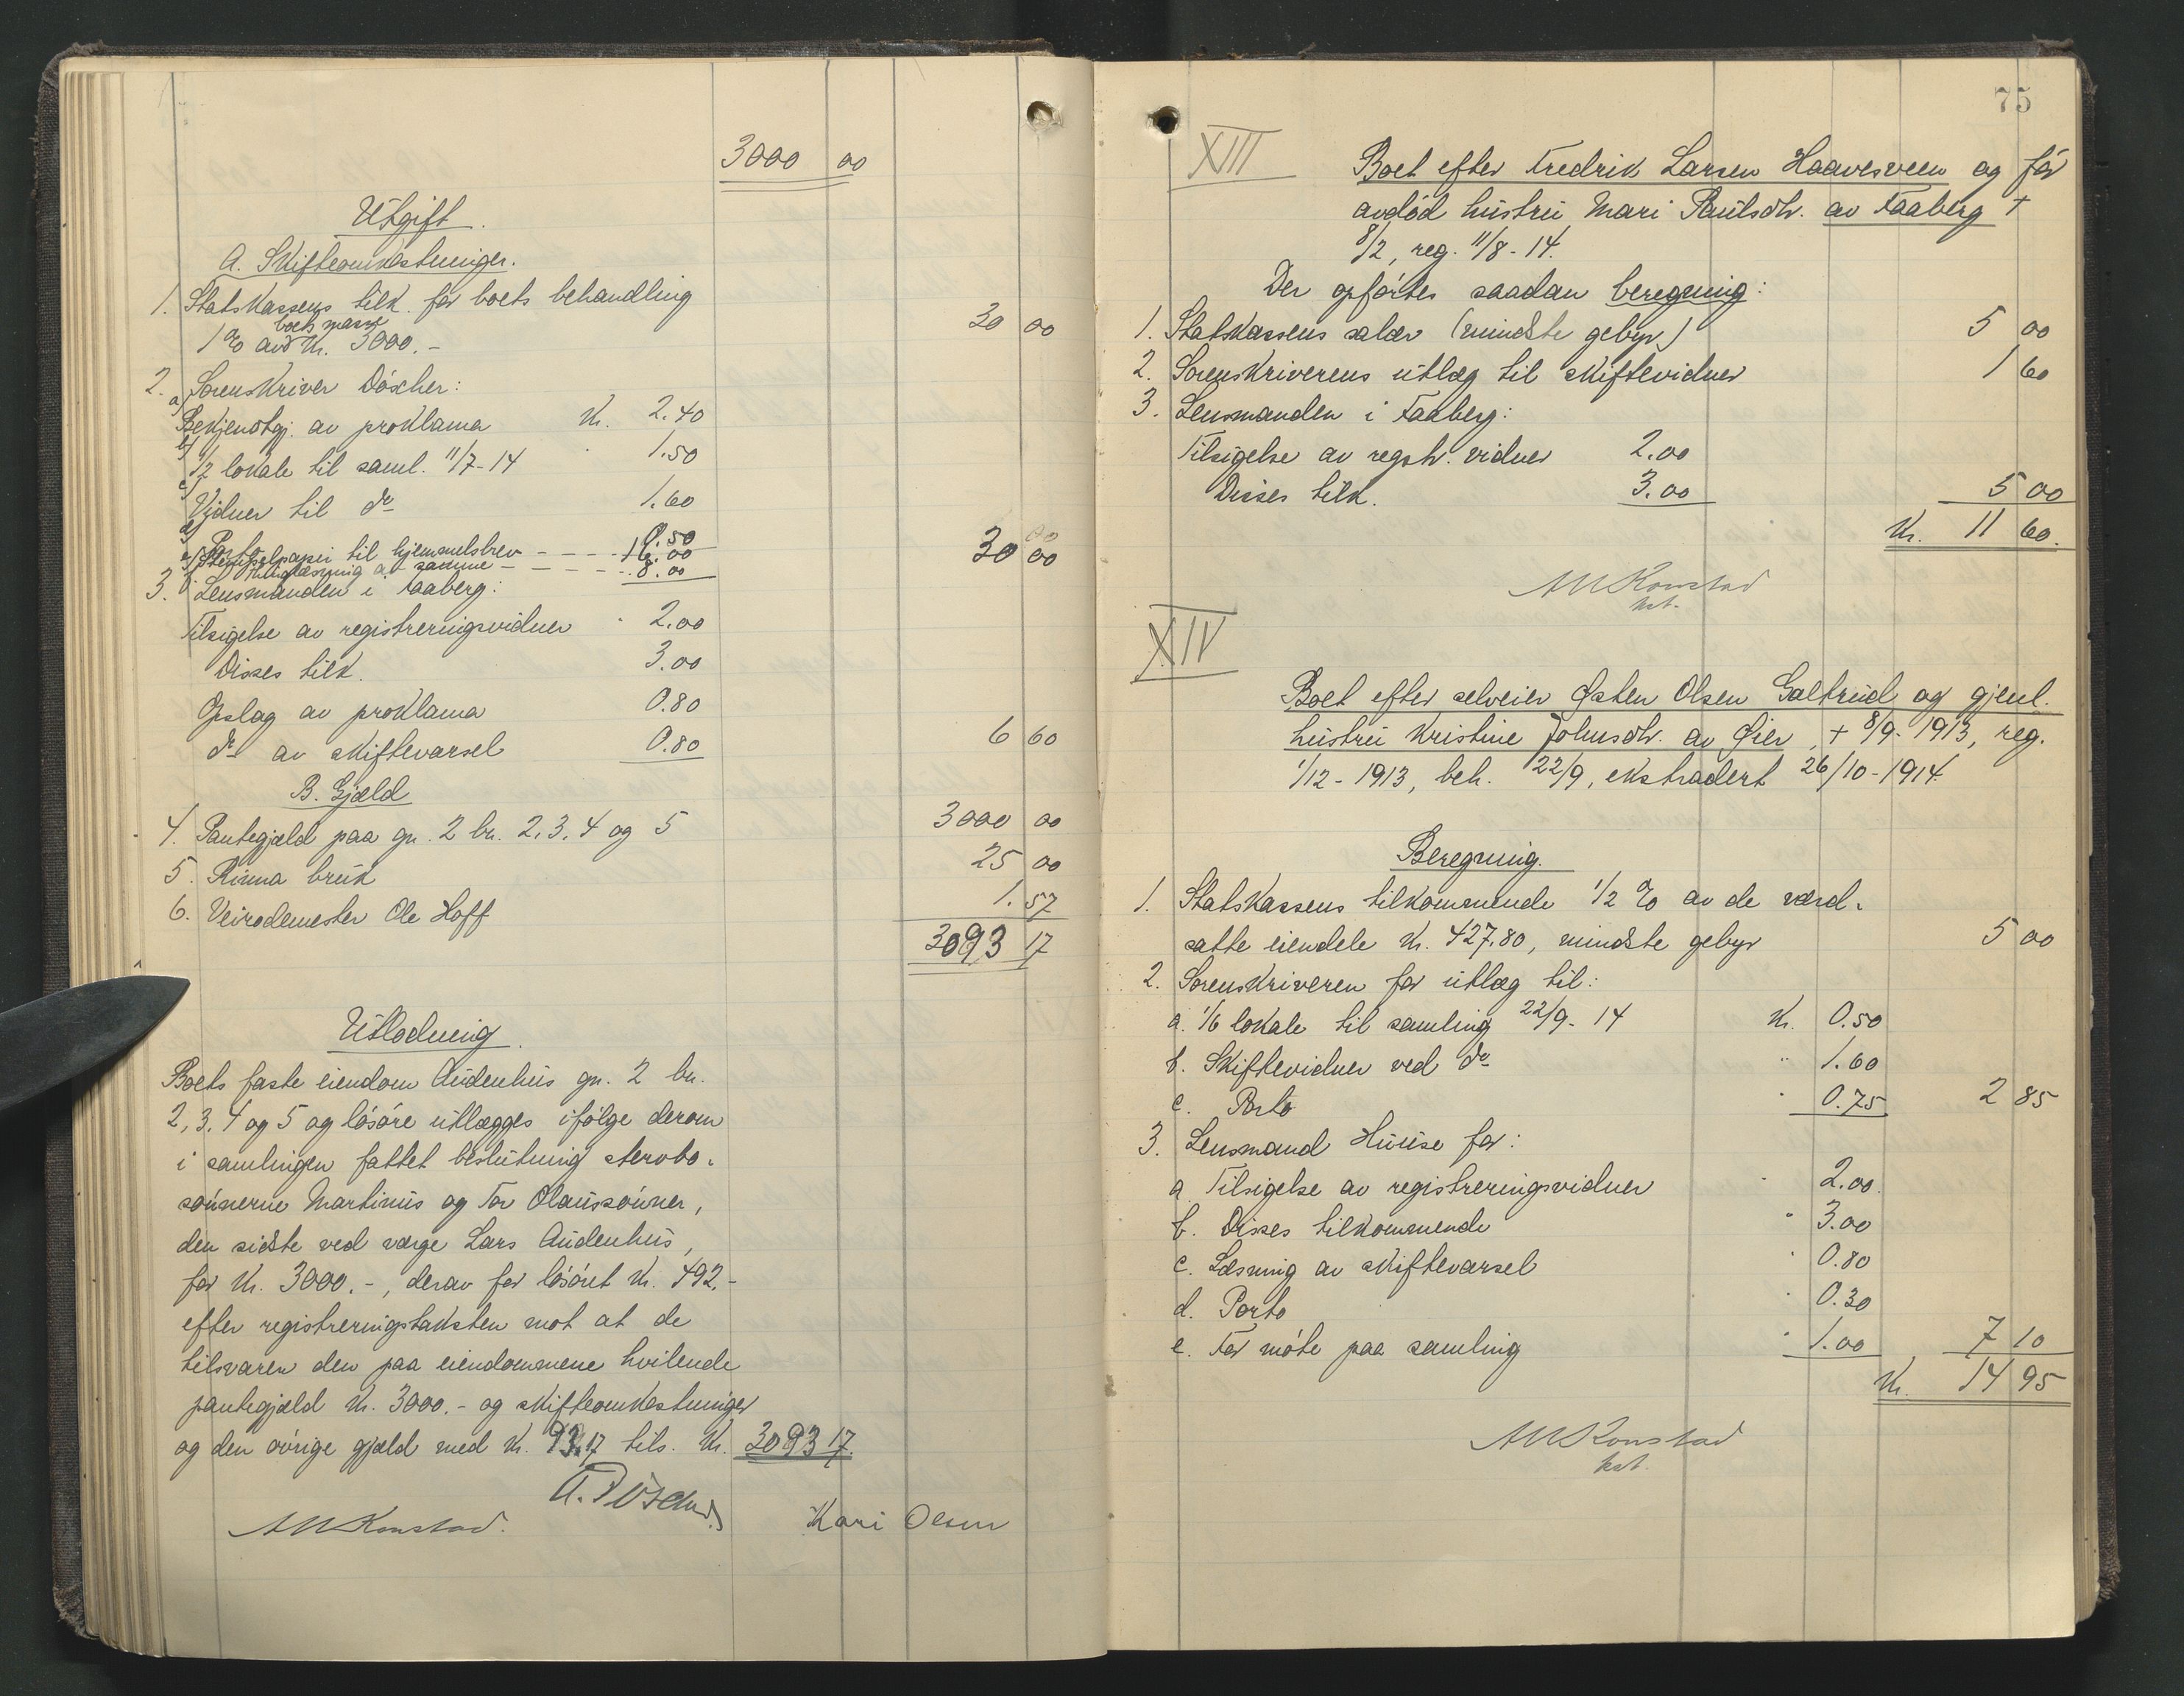 3000 00
Utgift.
A. Skifteomkostninger.
1. Statskassens tilk. for boets behandling
boets masse
1 % av Kr. 3000.- 30 00
2. Sorenskriver Döscher:
a) Bekjendtgj. av proklama Kr. 2.40
b) 1/2 lokale til saml. 11/7-14 " 1.50
c) Vidner til do 1.60
d) Porto 0.50
e) Stempelpapir til hjemmelsbrev - - - - 16.00 30 00
f) Tinglæsning av samme - - - - - 8.00
3. Lensmanden i Faaberg:
Tilsigelse av registreringsvidner " 2.00
Disses tilk. 3.00
Opslag av proklama 0.80
do av skiftevarsel 0.80 6 60
B. Gjæld
4. Pantegjæld paa gn. 2 bn. 2, 3, 4 og 5 3000 00
5. Rinna bruk 25 00
6. Veirodemester Ole Hoff 1.57
3093 17
Utlodning.
Boets faste eiendom Audenhus gn. 2 bn.
2, 3, 4 og 5 og løsøre utlægges ifølge derom
i samlingen fattet beslutning sterbo-
sønnerne Martinus og Tor Olaussønner,
den sidste ved værge Lars Audenhus,
for Kr. 3000.-, derav for løsøret Kr. 492.-
efter registreringstaksten mot at de
tilsvarer den paa eiendommene hvilende
pantegjæld Kr. 3000.- og skifteomkostninger
og den øvrige gjæld med Kr. 93.17 tils. Kr. 3093 17.
A. Döscher
AM Konstad. Kari Olsen
75
XIII
Boet efter Fredrik Larsen Haavesveen og før
avdød hustru Mari Paulsdtr. av Faaberg †
8/2, reg. 11/8-14.
Der opførtes saadan beregning:
1. Statskassens salær (mindste gebyr) 5 00
2. Sorenskriverens utlæg til skiftevidner 1 60
3. Lensmanden i Faaberg:
Tilsigelse av regstr. vidner 2.00
Disses tilk. 3.00 5 00
Kr. 11 60.
AM Konstad
kst.
XIV
Boet efter selveier Østen Olsen Galtrud og gjenl.
hustru Kristine Johnsdtr. av Øier, † 8/9-1913, reg.
1/12-1913, beh. 22/9, ekstradert 26/10-1914.
Beregning.
1. Statskassens tilkommende 1/2 % av de værd-
satte eiendele Kr. 427.80, mindste gebyr 5 00
2. Sorenskriveren for utlæg til:
a. 1/6 lokale til samling 22/9-14 Kr. 0.50
b. Skiftevidner ved do " 1.60
c. Porto " 0.75 2 85
3. Lensmand Huuse for:
a. Tilsigelse av registreringsvidner " 2.00
b. Disses tilkommende " 3.00
c. Læsning av skiftevarsel " 0.80
d. Porto " 0.30
e. For møte paa samling " 1.00 7 10
Kr. 14 95
AM Konstad
kst.